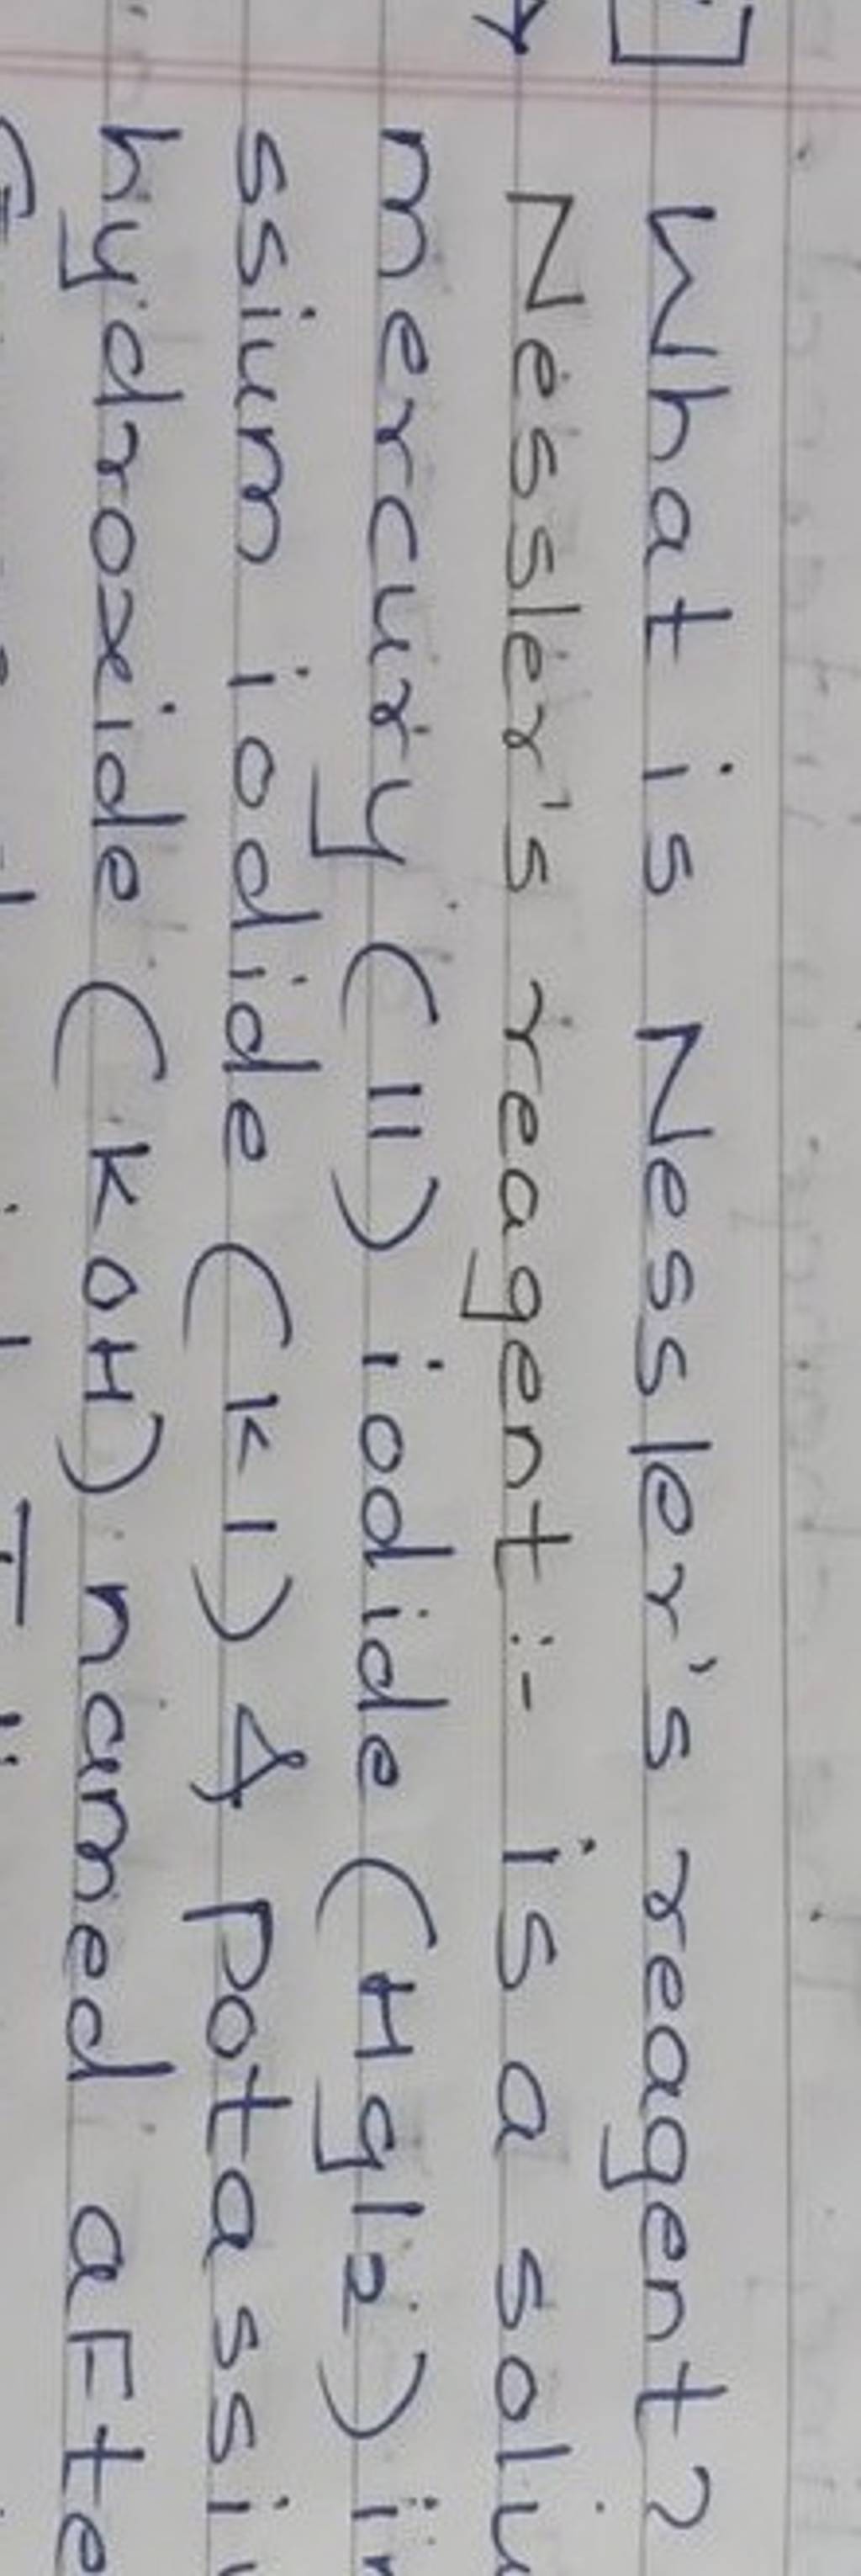 What is Nessler's reagent?
Nessler's reagent :- is a solu
mercury (II) iodide (HgI2) in
ssium iodide (KI) & potassiu
hydroxide (KOH) named aFte